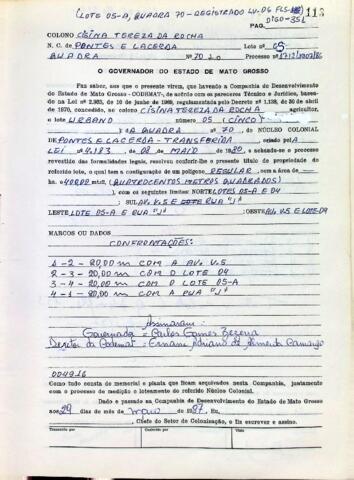 (LOTE 05-A, QUADRA 70 - REGISTRADO LV-06 FLS
113
PAG.
0160-35L
COLONO CISINA TEREZA DA ROCHA
N. C. de PONTES E LACERDA Lote nº 05
QUADRA Nº 70 Processo nº
O GOVERNADOR DO ESTADO DE MATO GROSSO
Faz saber, aos que a presente virem, que havendo a Companhia de Desenvolvimento
do Estado de Mato Grosso - CODEMAT-, de acôrdo com os pareceres Técnico e Jurídico, basea-
da na Lei nº 2.983, de 10 de junho de 1969, regulamentada pelo Decreto nº 1.138, de 30 de abril
de 1970, concedido, ao colono CISINA TEREZA DA ROCHA agricultor,
o lote URBANO número 05 (CINCO)
DA QUADRA nº 70, do NÚCLEO COLONIAL
DE PONTES E LACERDA - TRANSFERIDA criado pela
LEI nº 4.183, de 08 de MAIO de 1980, e achando-se o processo
revestido das formalidades legais, resolveu conferir-lhe o presente título de propriedade do
referido lote, o qual tem a configuração de um polígono REGULAR, com a área de
mts2. (QUATROCENTOS METROS QUADRADOS)
, com os seguintes limites: NORTE LOTES 05-A E 04
; SUL AV. V.5 E LOTE RUA "J"
LESTE LOTE 05-A E RUA "J" ; OESTE AV. V.5 E LOTE-04
MARCOS OU DADOS
CONFRONTAÇÕES:
1-2 - 20,00 m COM A AV. V.5
2-3 - 20,00 m COM O LOTE 04
3-4 - 20,00 m COM O LOTE 05-A
4-1 - 20,00 m COM A RUA "J"
Assinaram
Governador = Carlos Gomes Bezerra
Diretor da Codemat = Ernani Adriano de Almeida Camargo
004916
Como tudo consta do memorial e planta que ficam arquivados nesta Companhia, juntamente
com o processo de medição o loteamento do referido Núcleo Colonial.
Dado e passado na Companhia de Desenvolvimento do Estado de Mato Grosso
aos 29 dias do mês de maio de 1987, Eu,
, Chefe do Setor de Colonização, o fiz escrever e assino.
Transcrito por Conferido por Visto